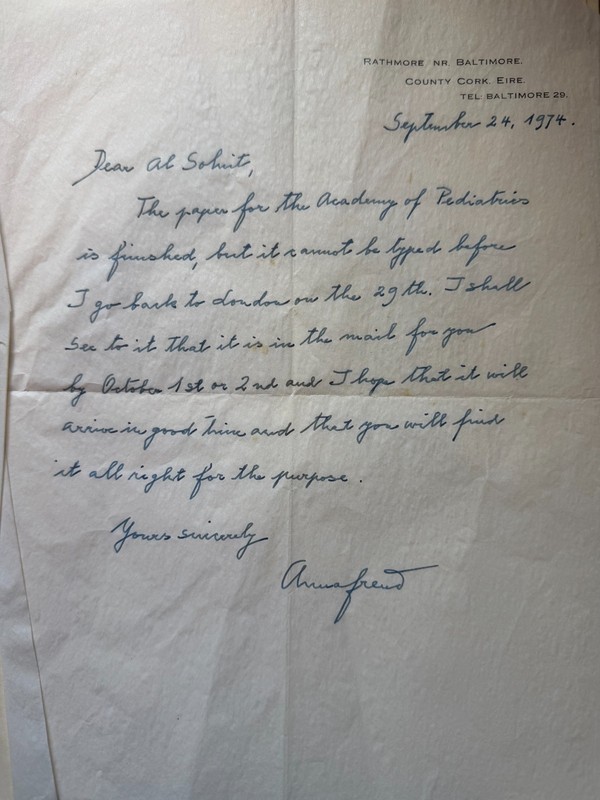 RATHMORE NR. BALTIMORE.
COUNTY CORK. EIRE.
TEL: BALTIMORE 29.
September 24, 1974.
Dear Al Solnit,
The paper for the Academy of Pediatrics
is finished, but it cannot be typed before
I go back to London on the 29th. I shall
see to it that it is in the mail for you
by October 1st or 2nd and I hope that it will
arrive in good time and that you will find
it all right for the purpose.
Yours sincerely
Anna Freud